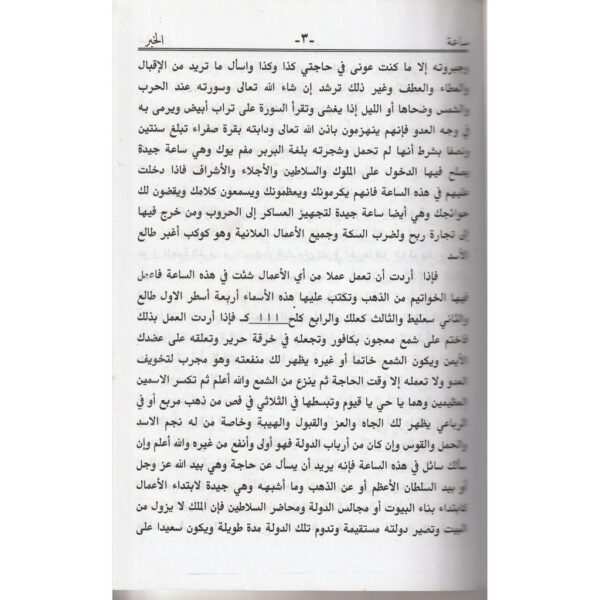 ساعة -٣- الخبر
وجبروته إلا ما كنت عونى في حاجتي كذا وكذا واسأل ما تريد من الإقبال
والعطاء والعطف وغير ذلك ترشد إن شاء الله تعالى وسورته عند الحرب
والشمس وضحاها أو الليل إذا يغشى وتقرأ السورة على تراب أبيض ويرمى به
في وجه العدو فإنهم ينهزمون باذن الله تعالى ودابته بقرة صفراء تبلغ سنتين
ونصفا بشرط أنها لم تحمل وشجرته بلغة البربر مفم يوك وهي ساعة جيدة
يصلح فيها الدخول على الملوك والسلاطين والأجلاء والأشراف فاذا دخلت
عليهم في هذه الساعة فانهم يكرمونك ويعظمونك ويسمعون كلامك ويقضون لك
حوائجك وهي أيضا ساعة جيدة لتجهيز العساكر إلى الحروب ومن خرج فيها
إلى تجارة ربح ولضرب السكة وجميع الأعمال العلانية وهو كوكب أغبر طالع
الأسد
فإذا أردت أن تعمل عملا من أي الأعمال شئت في هذه الساعة فاعمل
فيها الخواتيم من الذهب وتكتب عليها هذه الأسماء أربعة أسطر الاول طالع
والثاني سعليط والثالث كعلك والرابع كلح ١١١ كـ فإذا أردت العمل بذلك
فاختم على شمع معجون بكافور وتجعله في خرقة حرير وتعلقه على عضدك
الأيمن ويكون الشمع خاتما أو غيره يظهر لك منفعته وهو مجرب لتخويف
العدو ولا تعمله إلا وقت الحاجة ثم ينزع من الشمع والله أعلم ثم تكسر الاسمين
العظيمين وهما يا حي يا قيوم وتبسطها في الثلاثي في فص من ذهب مربع أو في
الرباعي يظهر لك الجاه والعز والقبول والهيبة وخاصة من له نجم الاسد
والحمل والقوس وإن كان من أرباب الدولة فهو أولى وأنفع من غيره والله أعلم وإن
سألك سائل في هذه الساعة فإنه يريد أن يسأل عن حاجة وهي بيد الله عز وجل
أو بيد السلطان الأعظم أو عن الذهب وما أشبهه وهي جيدة لابتداء الأعمال
كابتداء بناء البيوت أو مجالس الدولة ومحاضر السلاطين فإن الملك لا يزول من
البيت وتصير دولته مستقيمة وتدوم تلك الدولة مدة طويلة ويكون سعيدا على